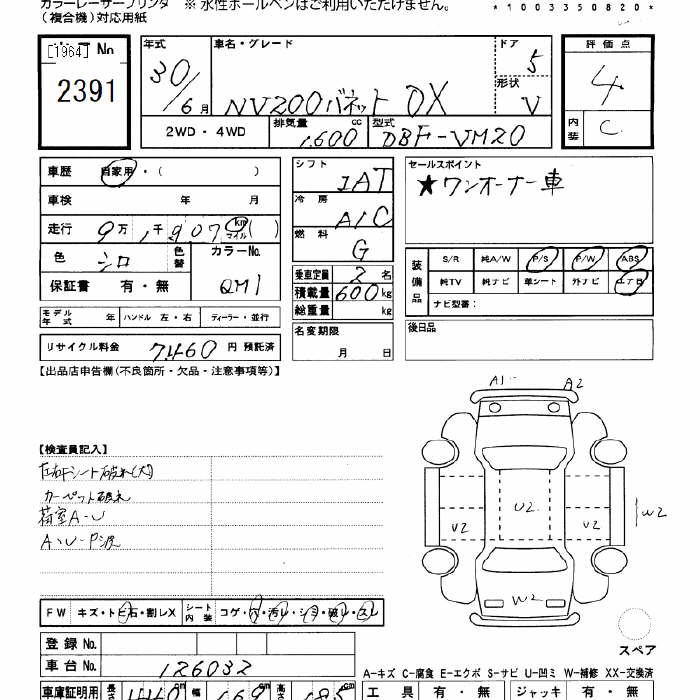 カラーレーザープリンタ ※ 水性ボールペンはご利用いただけません。
(複合機)対応用紙
*1003350820*
[1964] No
2391
年式 30/6月
車名・グレード NV200バネット DX
ドア 5
形状 V
2WD・4WD
排気量 1,600 cc
型式 DBF-VM20
評価点 4
内装 C
車歴 自家用・( )
車検 年 月
走行 9万 1千 907 km マイル ( )
色 シロ 色替
カラーNo. QM1
保証書 有・無
モデル年式 年 ハンドル 左・右 ディーラー・並行
リサイクル料金 7460 円 預託済
シフト IAT
冷房 A/C
燃料 G
乗車定員 2 名
積載量 600 kg
総重量 kg
名変期限
月 日
セールスポイント
★ワンオーナー車
装備品
S/R 純A/W P/S P/W ABS
純TV 純ナビ 革シート 外ナビ エアB
ナビ型番:
後日品
【出品店申告欄(不良箇所・欠品・注意事項等)】
【検査員記入】
左右Fシート破れ(大)
カーペット破れ
荷室A-U
A、U-P波
A1 A2
U2
U2
U2
W2
W2
スペア
FW キズ・トビ石・割レX シート内装 コゲ・穴・汚レ・シミ・破レ・スレ
登録No.
車台No. 126032
A-キズ C-腐食 E-エクボ S-サビ U-凹ミ W-補修 XX-交換済
車庫証明用 長さ 440 cm 幅 169 cm 高さ 185 cm
工具 有・無 ジャッキ 有・無